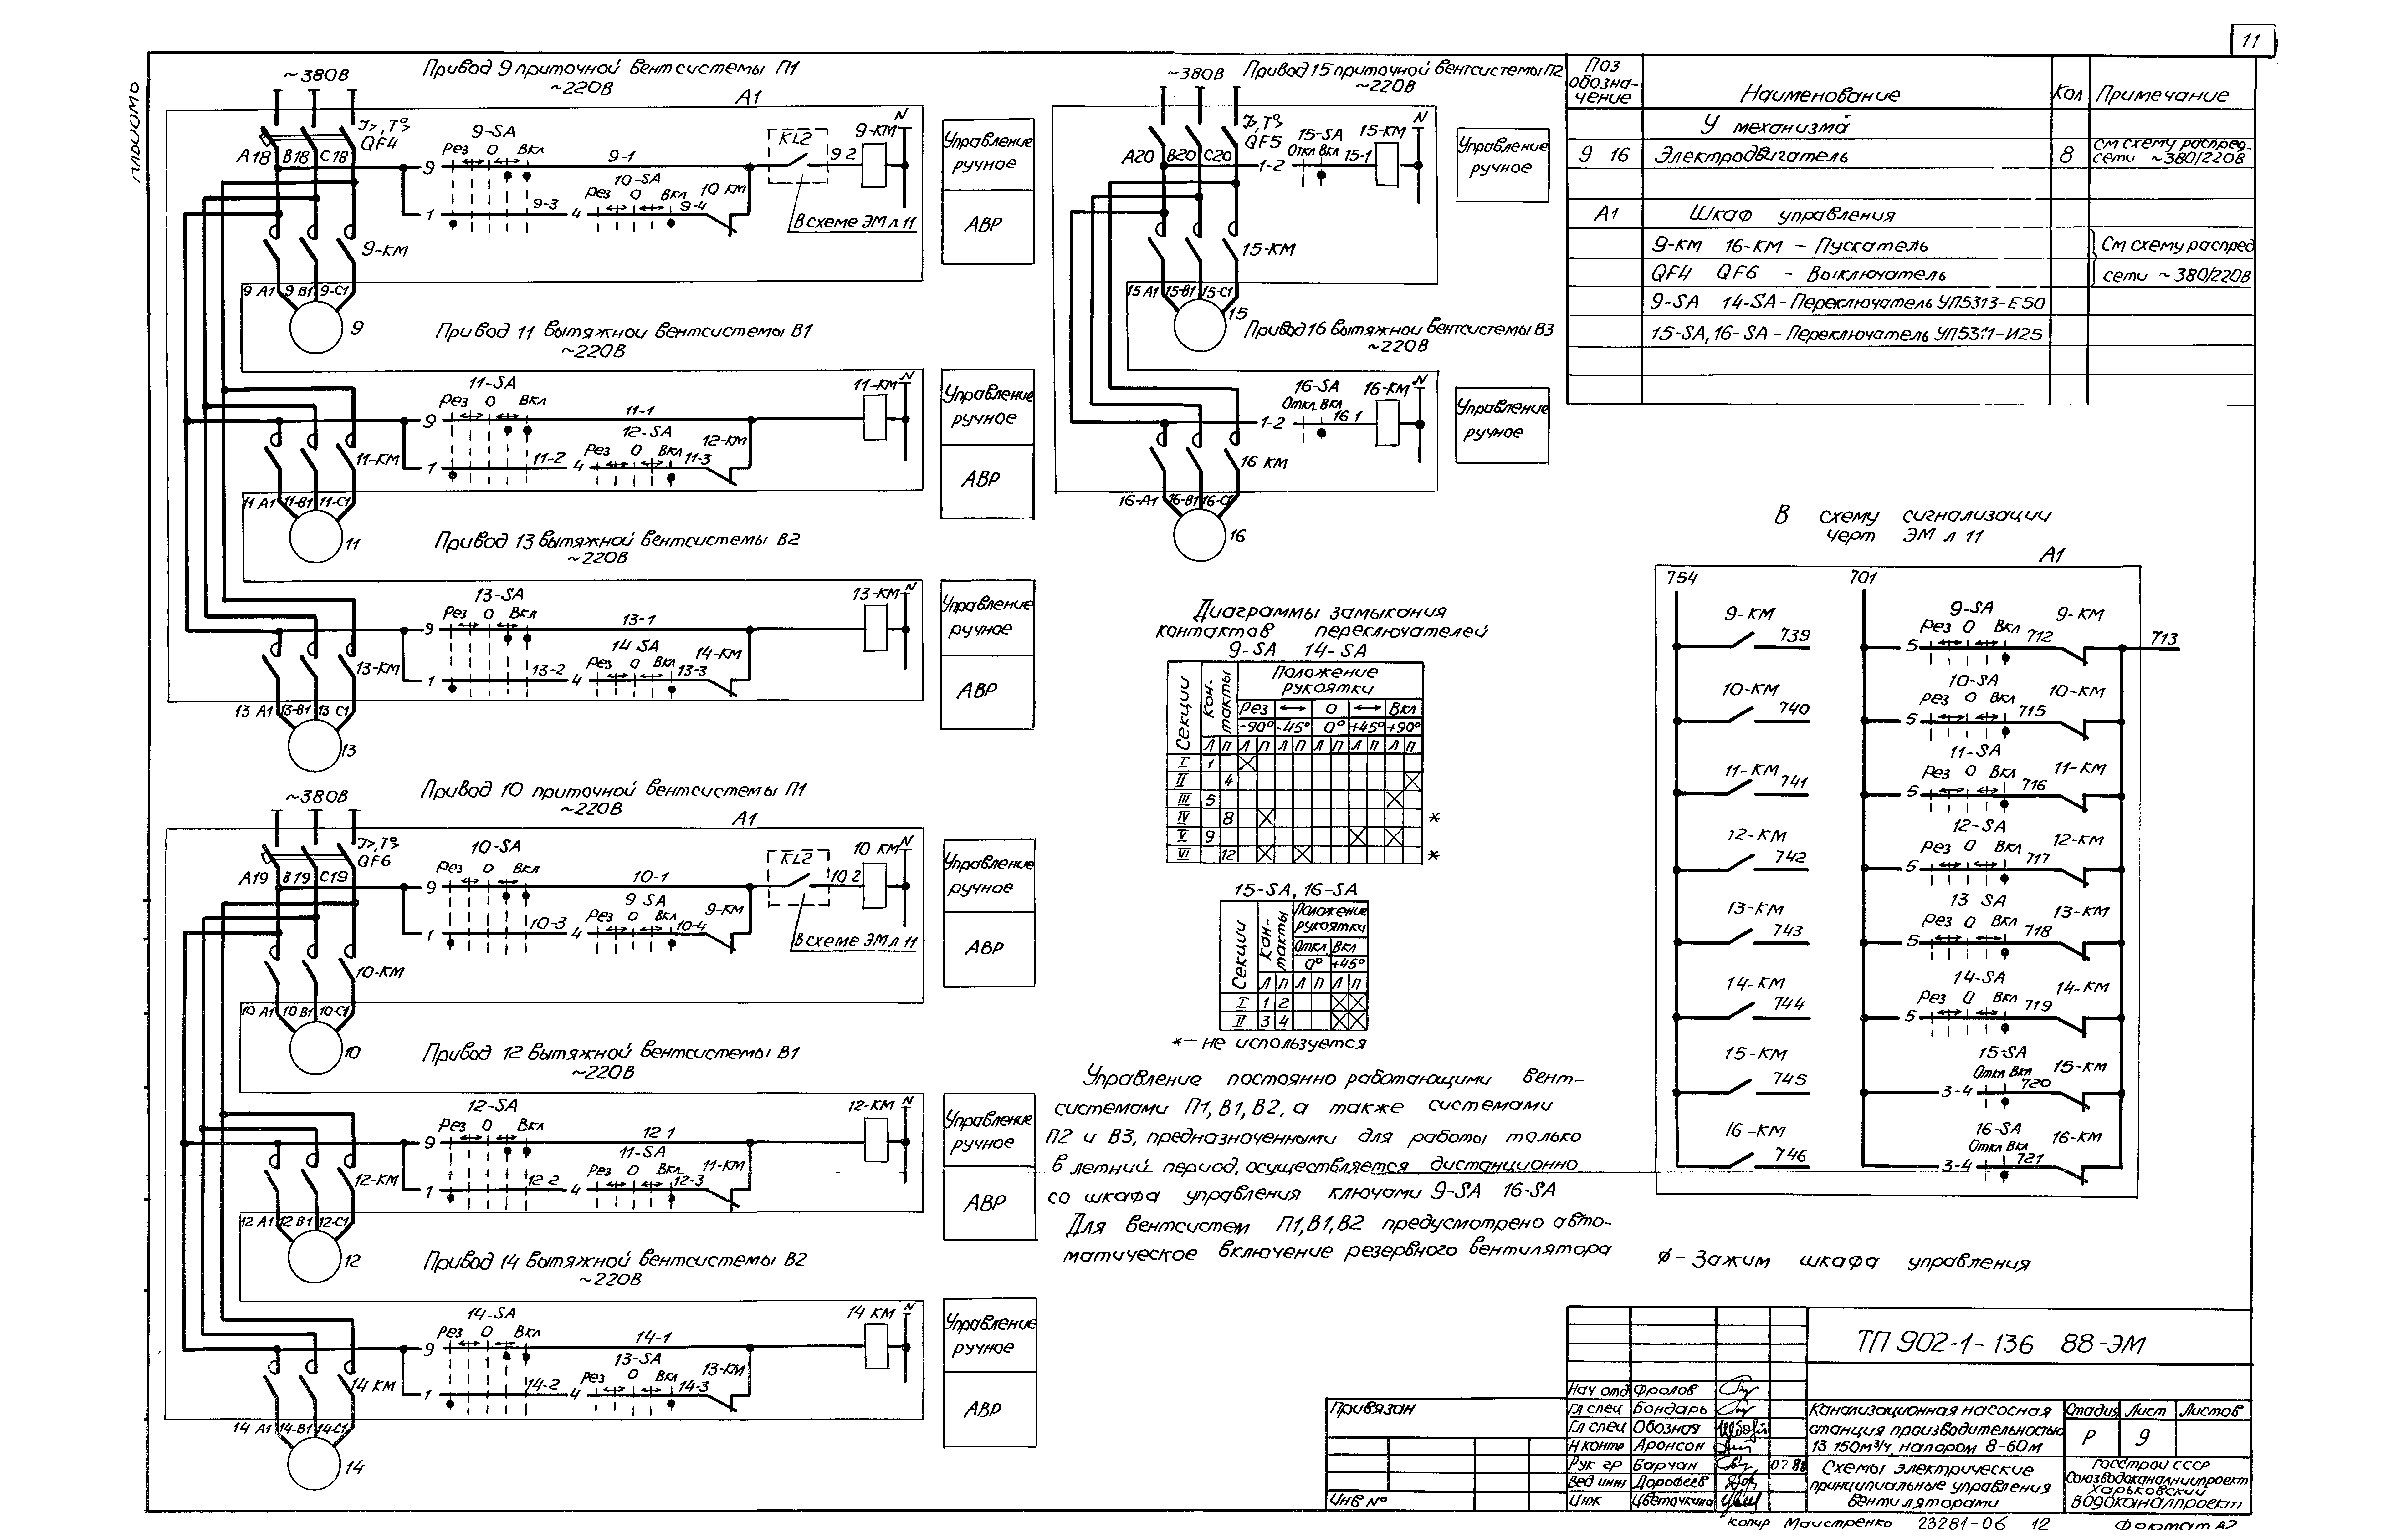 11
Альбом
~380В
Привод 9 приточной вентсистемы П1
~220В
А1
I>, T°>
QF4
9-SA
Рез 0 Вкл
KL2
9-КМ
N
А18 В18 С18
9
9-1
9 2
10-SA
Рез 0 Вкл
10 КМ
1
9-3
4
9-4
В схеме ЭМ л 11
9-КМ
9 А1 9 В1 9-С1
9
Управление
ручное
АВР
Привод 11 вытяжной вентсистемы В1
~220В
11-SA
Рез 0 Вкл
11-КМ
N
9
11-1
12-SA
Рез 0 Вкл
12-КМ
11-КМ
1
11-2
4
11-3
11 А1 11-В1 11-С1
11
Управление
ручное
АВР
Привод 13 вытяжной вентсистемы В2
~220В
13-SA
Рез 0 Вкл
13-КМ
N
9
13-1
14 SA
Рез 0 Вкл
14-КМ
13-КМ
1
13-2
4
13-3
13 А1 13-В1 13 С1
13
Управление
ручное
АВР
~380В
Привод 10 приточной вентсистемы П1
~220В
А1
I>, T°>
QF6
10-SA
Рез 0 Вкл
KL2
10 КМ
N
А19 В19 С19
9
10-1
10 2
9 SA
Рез 0 Вкл
9-КМ
1
10-3
4
10-4
В схеме ЭМ л 11
10-КМ
10 А1 10 В1 10-С1
10
Управление
ручное
АВР
Привод 12 вытяжной вентсистемы В1
~220В
12-SA
Рез 0 Вкл
12-КМ
N
9
12 1
11-SA
Рез 0 Вкл
11-КМ
12-КМ
1
12 2
4
12-3
12 А1 12 В1 12-С1
12
Управление
ручное
АВР
Привод 14 вытяжной вентсистемы В2
~220В
14-SA
Рез 0 Вкл
14 КМ
N
9
14-1
13-SA
Рез 0 Вкл
13-КМ
14 КМ
1
14-2
4
14-3
14 А1 14-В1 14-С1
14
Управление
ручное
АВР
~380В
Привод 15 приточной вентсистемы П2
~220В
I>, T°>
QF5
15-SA
Откл Вкл
15-КМ
N
А20 В20 С20
1-2
15-1
15-КМ
15 А1 15-В1 15-С1
15
Управление
ручное
Привод 16 вытяжной вентсистемы В3
~220В
16-SA
Откл Вкл
16-КМ
N
1-2
16 1
16 КМ
16-А1 16-В1 16-С1
16
Управление
ручное
Диаграммы замыкания
контактов переключателей
9-SA 14-SA
Секции
Кон-
такты
Положение
рукоятки
Рез ↔ 0 ↔ Вкл
-90° -45° 0° +45° +90°
Л П Л П Л П Л П Л П Л П
I 1
II 4
III 5
IV 8 *
V 9
VI 12 *
15-SA, 16-SA
Секции
Кон-
такты
Положение
рукоятки
Откл Вкл
0° +45°
Л П Л П Л П
I 1 2
II 3 4
*- не используется
Управление постоянно работающими вент-
системами П1, В1, В2, а также системами
П2 и В3, предназначенными для работы только
в летний период, осуществляется дистанционно
со шкафа управления ключами 9-SA 16-SA
Для вентсистем П1, В1, В2 предусмотрено авто-
матическое включение резервного вентилятора
Поз
обозна-
чение
Наименование
Кол
Примечание
У механизма
9 16 Электродвигатель 8 см схему распред-
сети ~380/220В
А1 Шкаф управления
9-КМ 16-КМ - Пускатель См схему распред
QF4 QF6 - Выключатель сети ~380/220В
9-SA 14-SA - Переключатель УП5313-Е50
15-SA, 16-SA - Переключатель УП5311-И25
В схему сигнализации
черт ЭМ л 11
А1
754
701
9-КМ
739
9-SA
Рез 0 Вкл
9-КМ
5
712
713
10-КМ
740
10-SA
Рез 0 Вкл
10-КМ
5
715
11-КМ
741
11-SA
Рез 0 Вкл
11-КМ
5
716
12-КМ
742
12-SA
Рез 0 Вкл
12-КМ
5
717
13-КМ
743
13 SA
Рез 0 Вкл
13-КМ
5
718
14-КМ
744
14-SA
Рез 0 Вкл
14-КМ
5
719
15-КМ
745
15-SA
Откл Вкл
15-КМ
3-4
720
16-КМ
746
16-SA
Откл Вкл
16-КМ
3-4
721
ø - Зажим шкафа управления
Привязан
Инв №
Нач отд Фролов
Гл спец Бондарь
Гл спец Обозная
Н контр Аронсон
Рук гр Барчан
Вед инж Дорофеев
Инж Цветочкина
ТП 902-1-136 88-ЭМ
Канализационная насосная
станция производительностью
13 150м³/ч, напором 8-60м
Стадия Лист Листов
Р 9
Схемы электрические
принципиальные управления
вентиляторами
Госстрой СССР
Союзводоканалниипроект
Харьковский
Водоканалпроект
копир Маистренко 23281-06 12 Формат А2